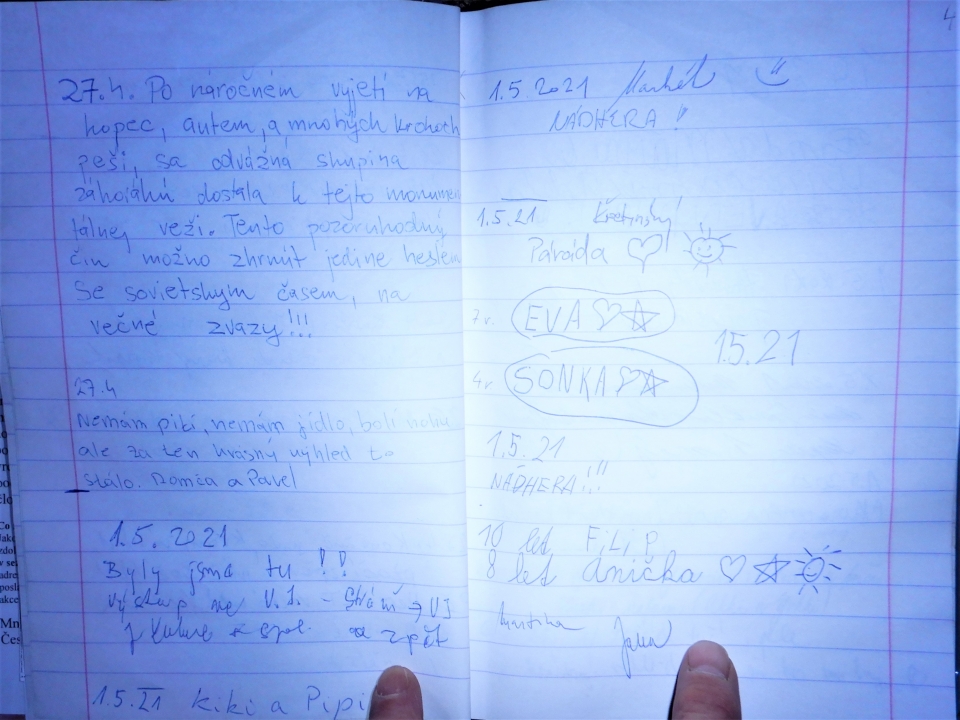 27.4. Po náročném vyjetí na
kopec, autem, a mnohých krokoch
peši, sa odvážna skupina
záhorákú dostala k tejto monumen
tálnej veži. Tento pozoruhodný
čin možno zhrnút jedine heslem
Se sovietskym časem, na
večné zvazy!!!
27.4
Nemám pití, nemám jídlo, bolí nohy
ale za ten krásný výhled to
stálo. Domča a Pavel
1.5.2021
Byly jsme tu !!
výstup na V.J. - Strání → VJ
a zpět
1.5.21 Kiki a Pipi
4
1.5.2021
NÁDHERA!
1.5.21. Křetinský
Paráda
7r. EVA
1.5.21
4r SONKA
1.5.21
NÁDHERA!!!
10 let FiLiP
8 let Anička
Martina Jana